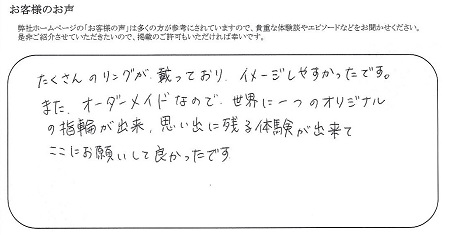 お客様のお声
弊社ホームページの「お客様の声」は多くの方が参考にされていますので、貴重な体験談やエピソードなどをお聞かせください。
是非ご紹介させていただきたいので、掲載のご許可もいただければ幸いです。
たくさんのリングが、載っており、イメージしやすかったです。
また、オーダーメイドなので、世界に一つのオリジナル
の指輪が出来、思い出に残る体験が出来て
ここにお願いして良かったです